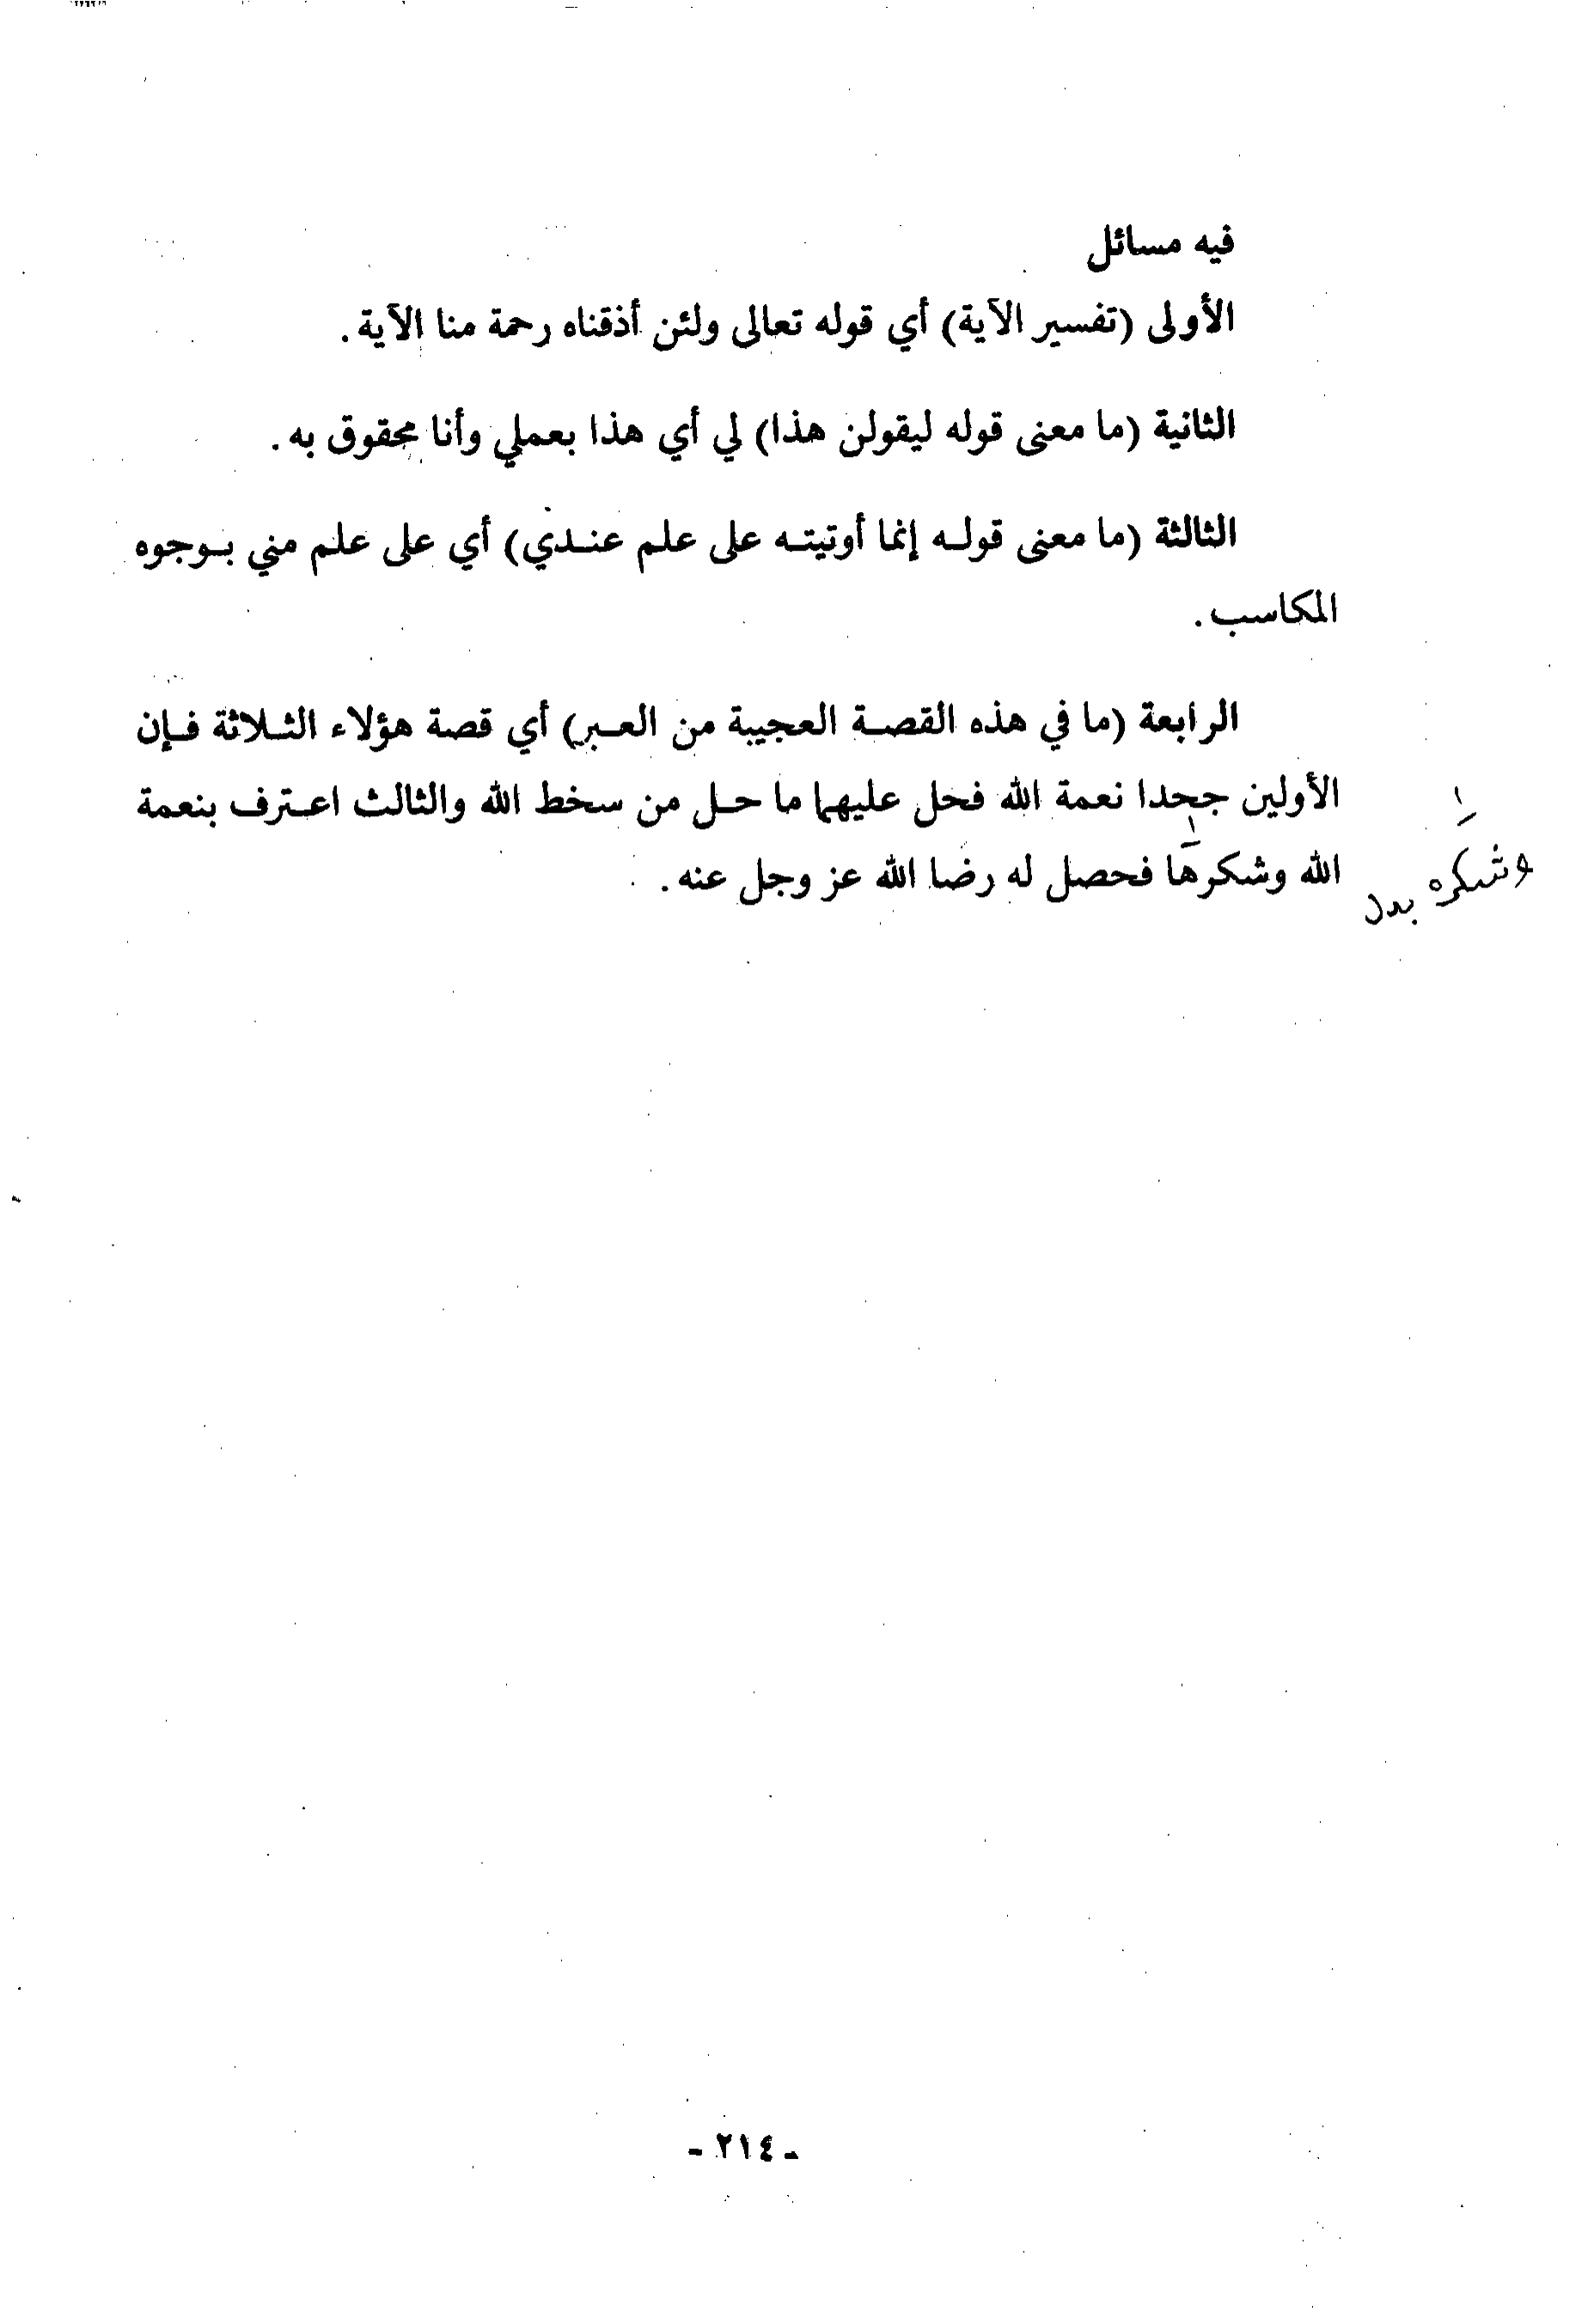 فيه مسائل
الأولى (تفسير الآية) أي قوله تعالى ولئن أذقناه رحمة منا الآية .
الثانية (ما معنى قوله ليقولن هذا) لي أي هذا بعملي وأنا محقوق به .
الثالثة (ما معنى قولـه إنما أوتيتـه على علم عنـدي) أي على علم مني بـوجوه
المكاسب .
الرابعة (ما في هذه القصـة العجيبة من العـبر) أي قصة هؤلاء الثـلاثة فـإن
الأولين جحدا نعمة الله فحل عليهما ما حـل من سخط الله والثالث اعـترف بنعمة
الله وشكرها فحصل له رضا الله عز وجل عنه .
١
١
وشكره بدل
- ٢١٤ -